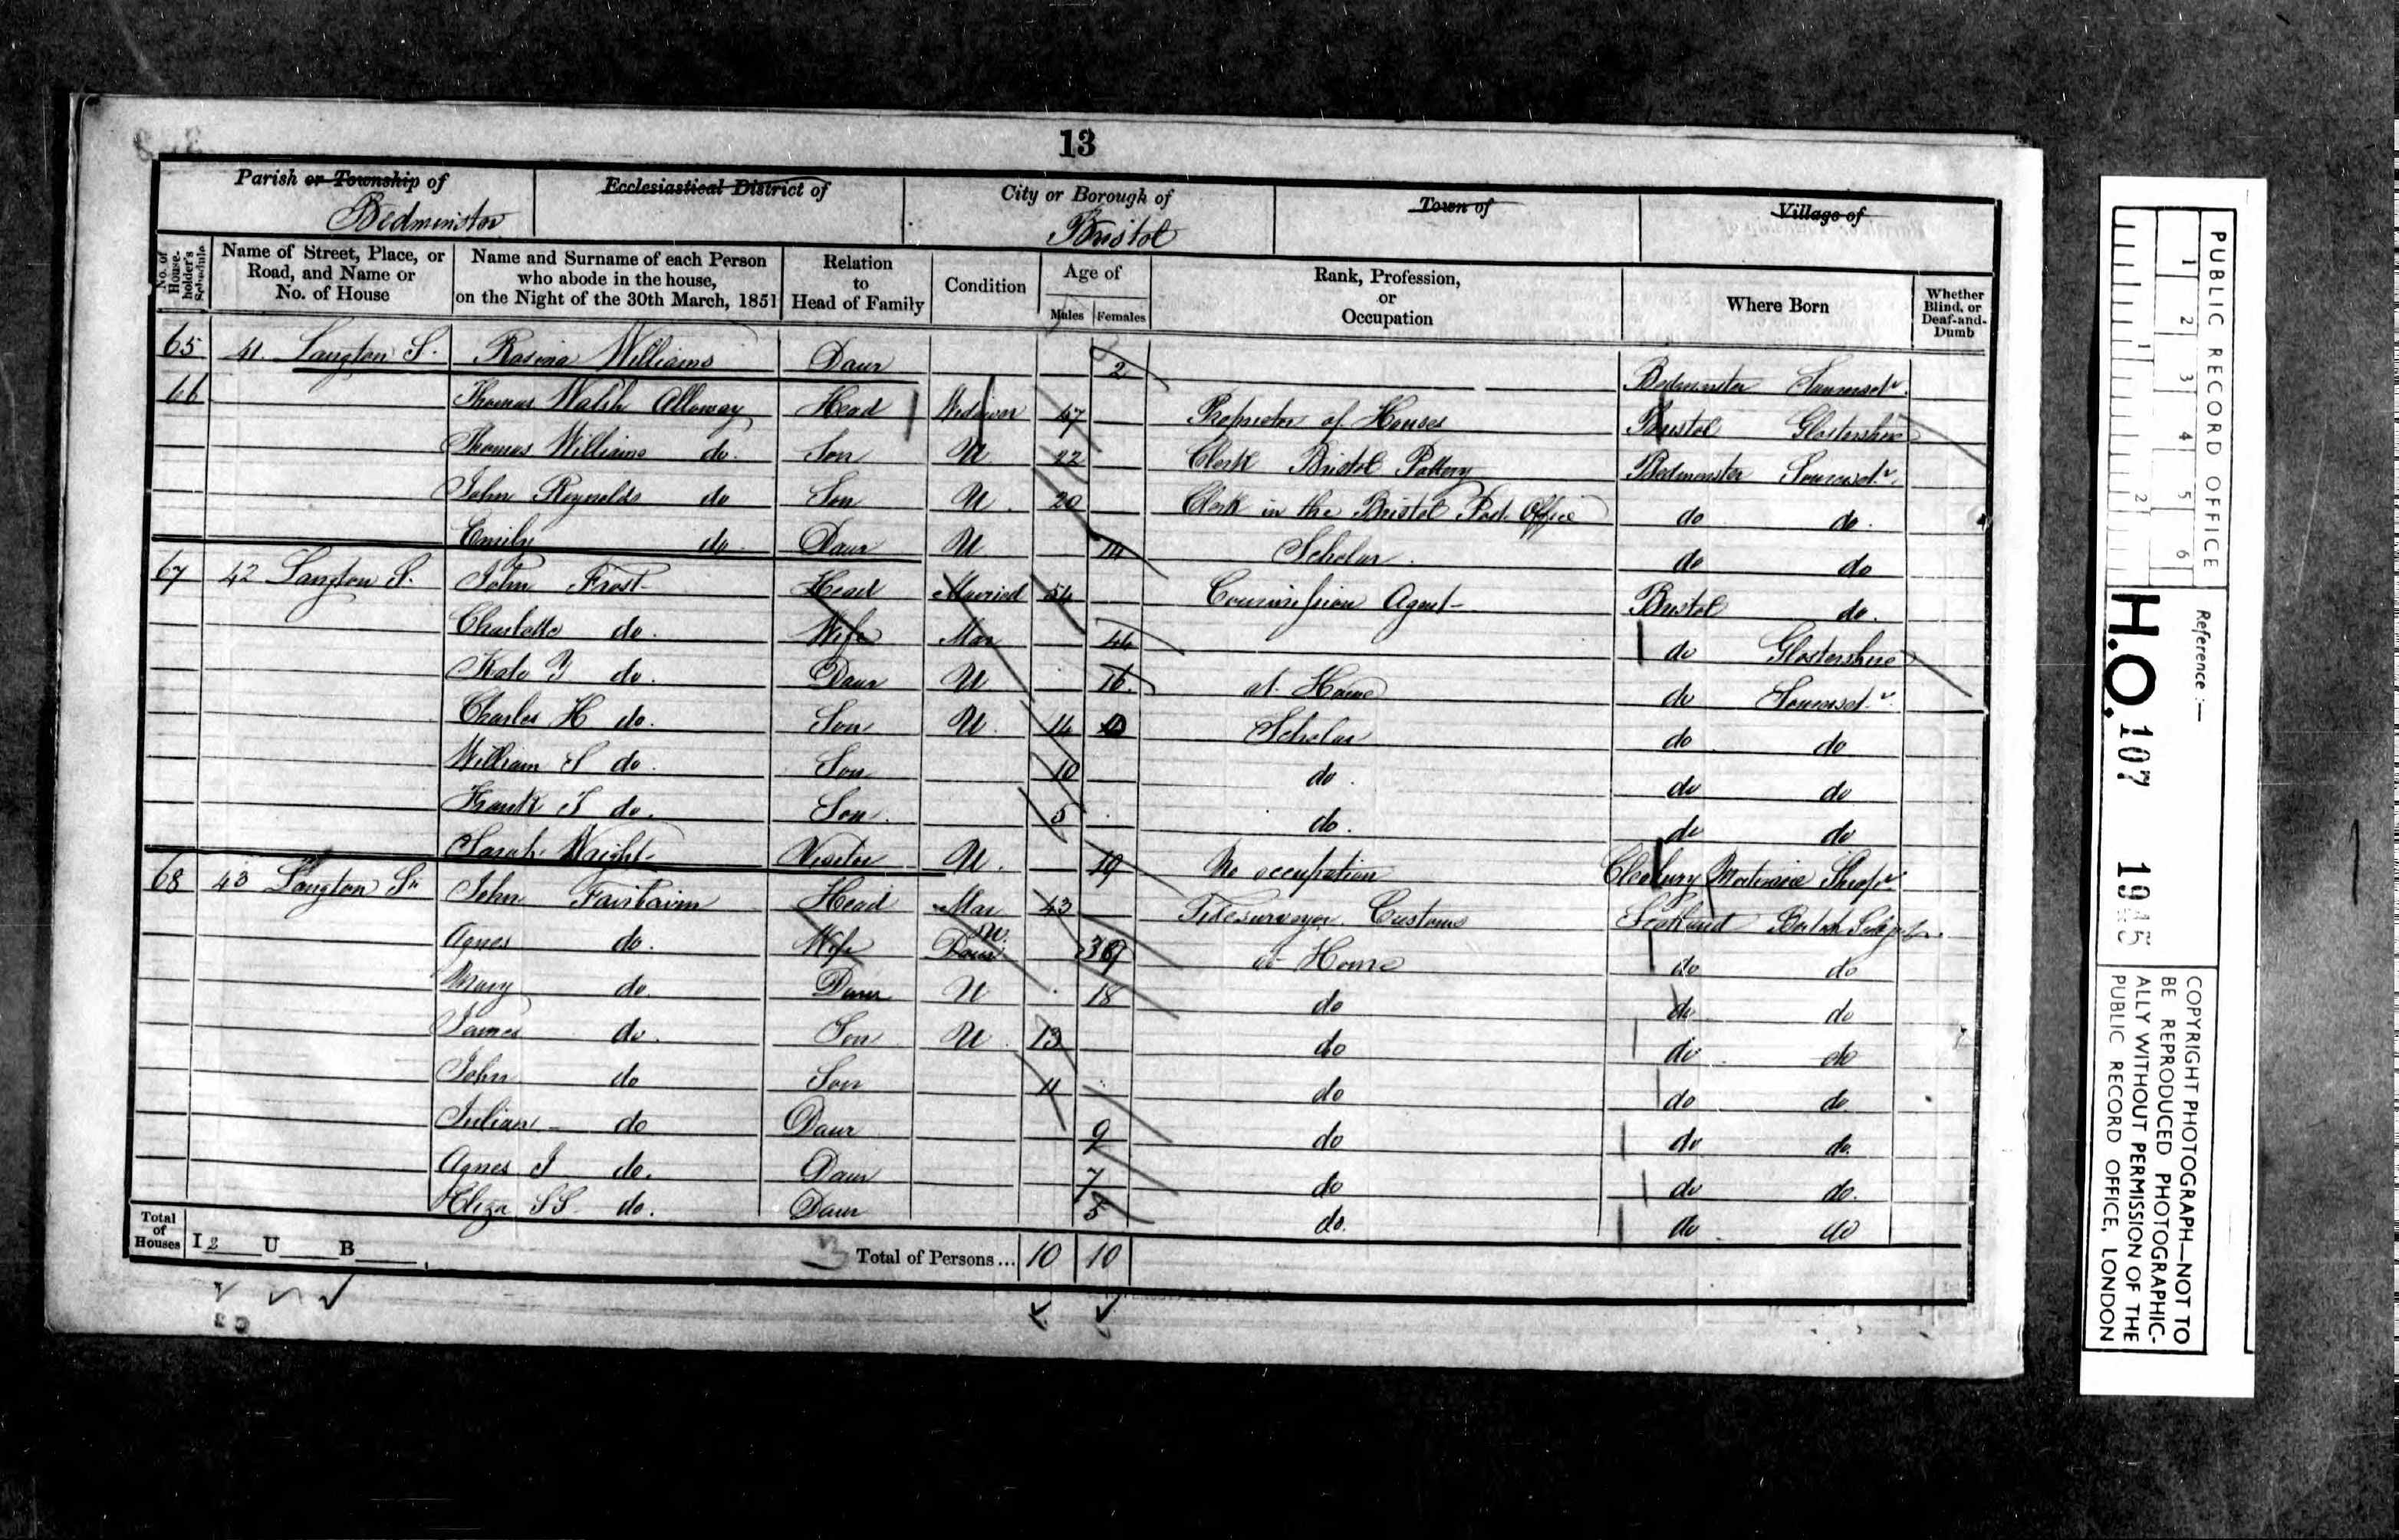 13
Parish or Township of Ecclesiastical District of City or Borough of Town of Village of
Bedminster Bristol
No. of House-holder's Schedule Name of Street, Place, or Road, and Name or No. of House Name and Surname of each Person who abode in the house, on the Night of the 30th March, 1851 Relation to Head of Family Condition Age of Males Females Rank, Profession, or Occupation Where Born Whether Blind, or Deaf-and-Dumb
65 41 Langton S. Rosina Williams Daur 2 Bedminster Somerset
66 Thomas Walsh Alloway Head Widower 47 Proprietor of Houses Bristol Glostershire
Thomas Williams do. Son U 22 Clerk Bristol Pottery Bedminster Somerset
John Reynolds do Son U. 20 Clerk in the Bristol Post Office do do.
Emily do Daur U 14 Scholar. do do
67 42 Langton S. John Frost Head Married 54 Commission Agent Bristol do.
Charlotte do. Wife Mar 44 do Glostershire
Kate do. Daur U 16. at Home do Somerset
Charles H do. Son U. 14 Scholar do do
William S do. Son 10 do. do do
Frank do. Son. 5 do. do do
Sarah Wright Visitor U. 19 No occupation Cleobury Mortimer Shrop
68 43 Langton St John Fairbairn Head Mar 43 Tidesurveyor Customs Scotland
Agnes do. Wife 39 at Home do do
Mary do. Daur U 18 do do do
James do. Son U. 13 do do. do
John do Son 11 do do do
Julian do Daur 9 do do do.
Agnes J do. Daur 7 do do do.
Eliza do. Daur 5 do. do. do
Total of Houses I 2 U B Total of Persons... 10 10
PUBLIC RECORD OFFICE
1 2 3 4 5 6
1 2
Reference :-
H.O. 107 1945
COPYRIGHT PHOTOGRAPH—NOT TO
BE REPRODUCED PHOTOGRAPHIC-
ALLY WITHOUT PERMISSION OF THE
PUBLIC RECORD OFFICE, LONDON